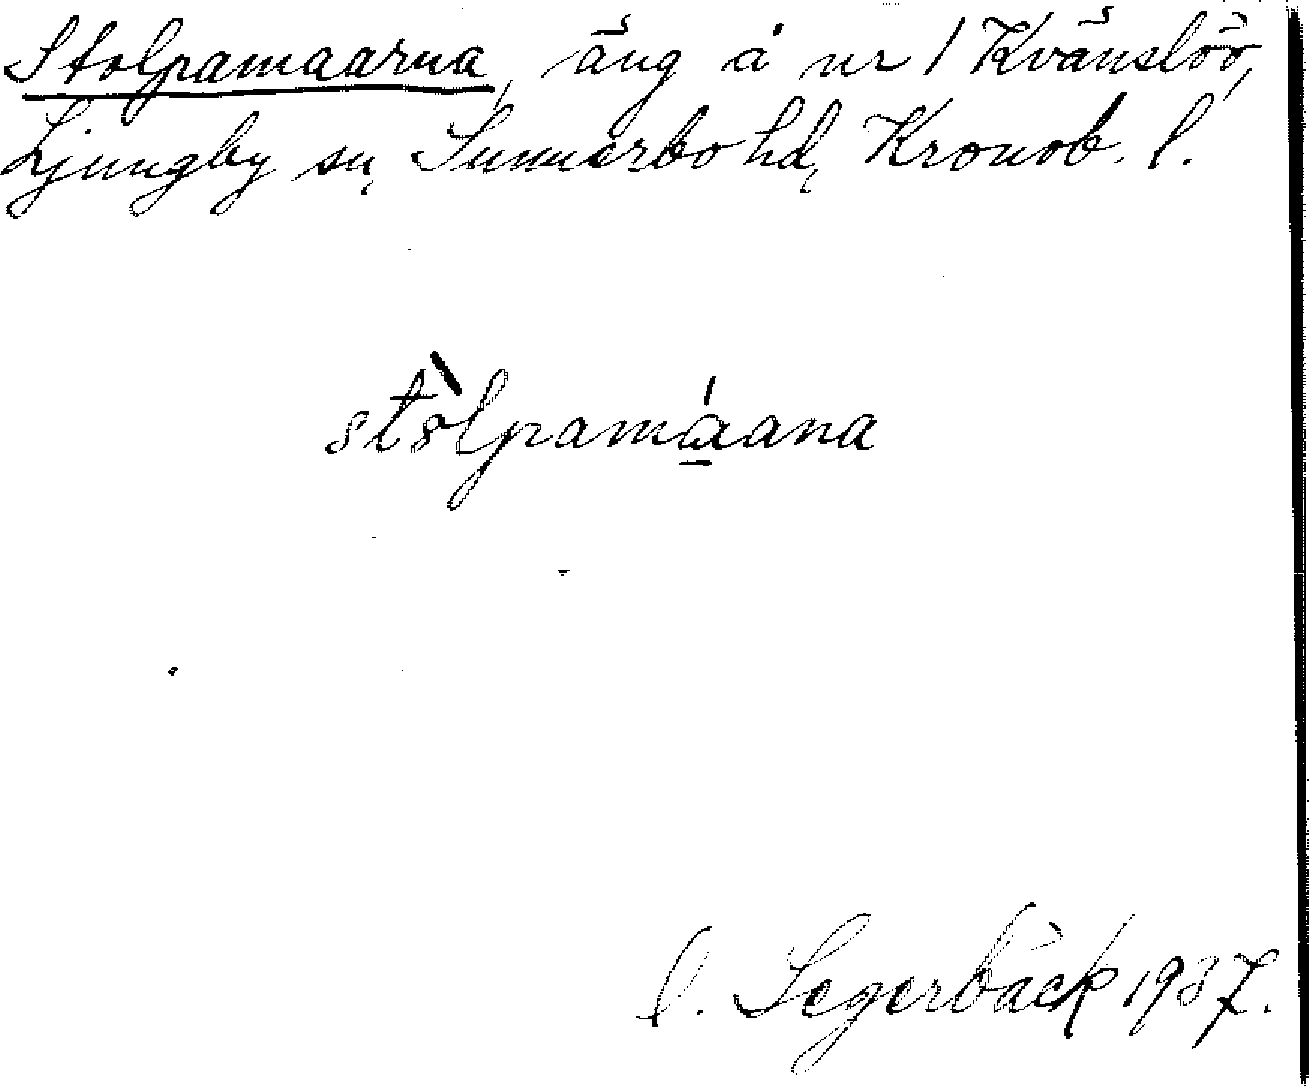 Stolpamaarna, äng å nr 1 Kvänslöv,
Ljungby sn, Sunnerbo hd, Kronob. l.
stòlpamáana
l. Segerbäck 1937.